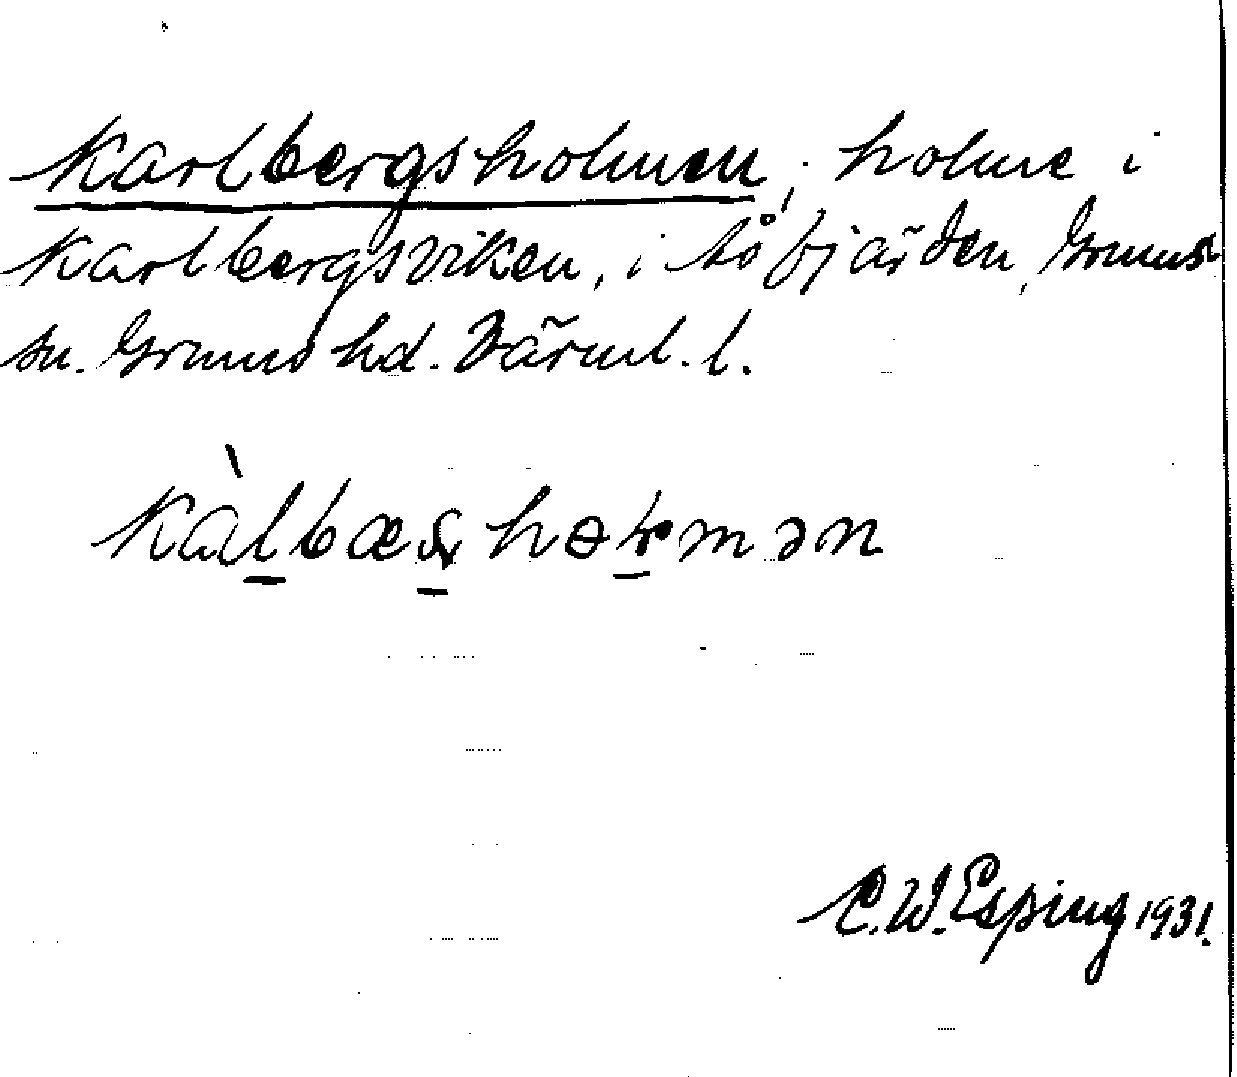 Karlbergsholmen; holme i
Karlbergsviken, i Åsfjärden, Grums
sn. Grums hd. Värml. l.
C.W. Esping 1931.